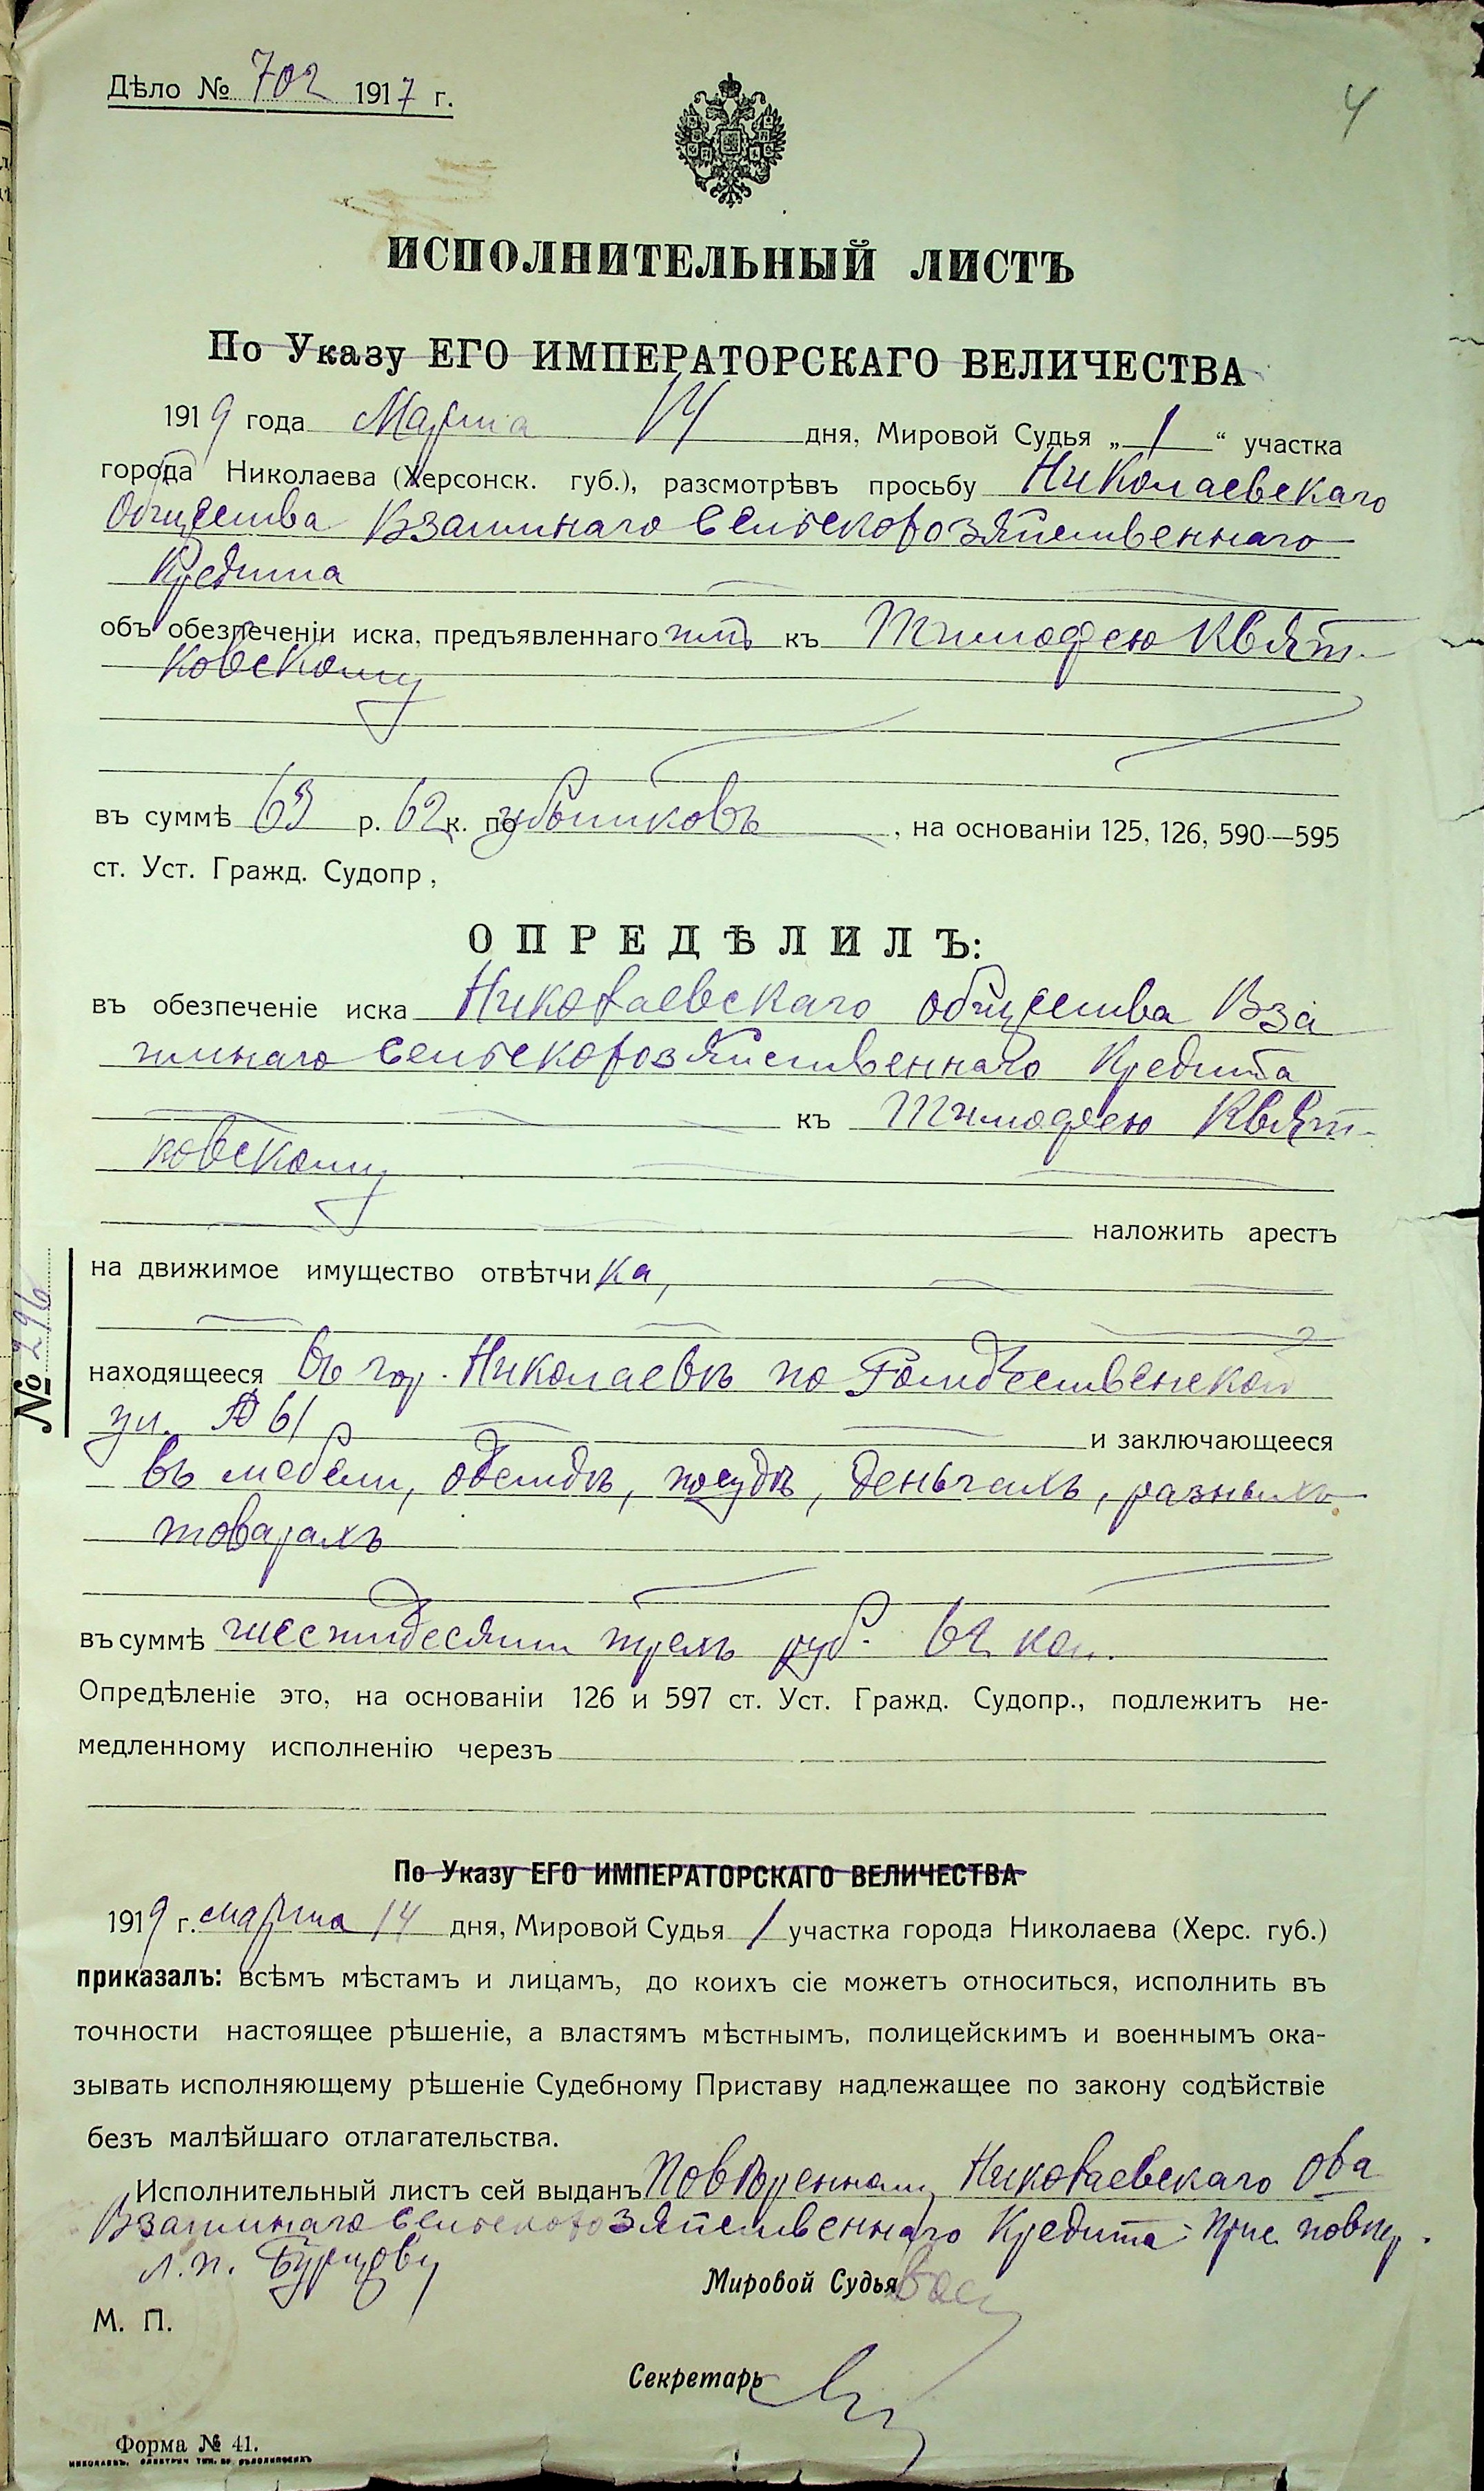 Дѣло № 702 1917 г.
4
ИСПОЛНИТЕЛЬНЫЙ ЛИСТЪ
По Указу ЕГО ИМПЕРАТОРСКАГО ВЕЛИЧЕСТВА
1919 года Марта 14 дня, Мировой Судья „1“ участка
города Николаева (Херсонск. губ.), разсмотрѣвъ просьбу Николаевскаго
Общества Взаимнаго Сельскохозяйственнаго
Кредита
объ обезпеченіи иска, предъявленнаго имъ къ Тимофею Квят-
ковскому
въ суммѣ 63 р. 62 к. по убытковъ, на основаніи 125, 126, 590—595
ст. Уст. Гражд. Судопр,
ОПРЕДѢЛИЛЪ:
въ обезпеченіе иска Николаевскаго Общества Вза
имнаго Сельскохозяйственнаго Кредита
къ Тимофею Квят-
ковскому
наложить арестъ
на движимое имущество отвѣтчика,
находящееся въ гор. Николаевѣ по Рождественской
ул. № 61
и заключающееся
въ мебели, одеждѣ, посудѣ, деньгахъ, разныхъ
товарахъ
въ суммѣ шестидесяти трехъ руб. 62 коп.
Опредѣленіе это, на основаніи 126 и 597 ст. Уст. Гражд. Судопр., подлежитъ не-
медленному исполненію черезъ
№ 296
По Указу ЕГО ИМПЕРАТОРСКАГО ВЕЛИЧЕСТВА
1919 г. марта 14 дня, Мировой Судья 1 участка города Николаева (Херс. губ.)
приказалъ: всѣмъ мѣстамъ и лицамъ, до коихъ сіе можетъ относиться, исполнить въ
точности настоящее рѣшеніе, а властямъ мѣстнымъ, полицейскимъ и военнымъ ока-
зывать исполняющему рѣшеніе Судебному Приставу надлежащее по закону содѣйствіе
безъ малѣйшаго отлагательства.
Исполнительный листъ сей выданъ Повѣренному Николаевскаго О-ва
Взаимнаго Сельскохозяйственнаго Кредита Прис. повѣр.
Л. П. Бурцову
Мировой Судья
М. П.
Секретарь
Форма № 41.